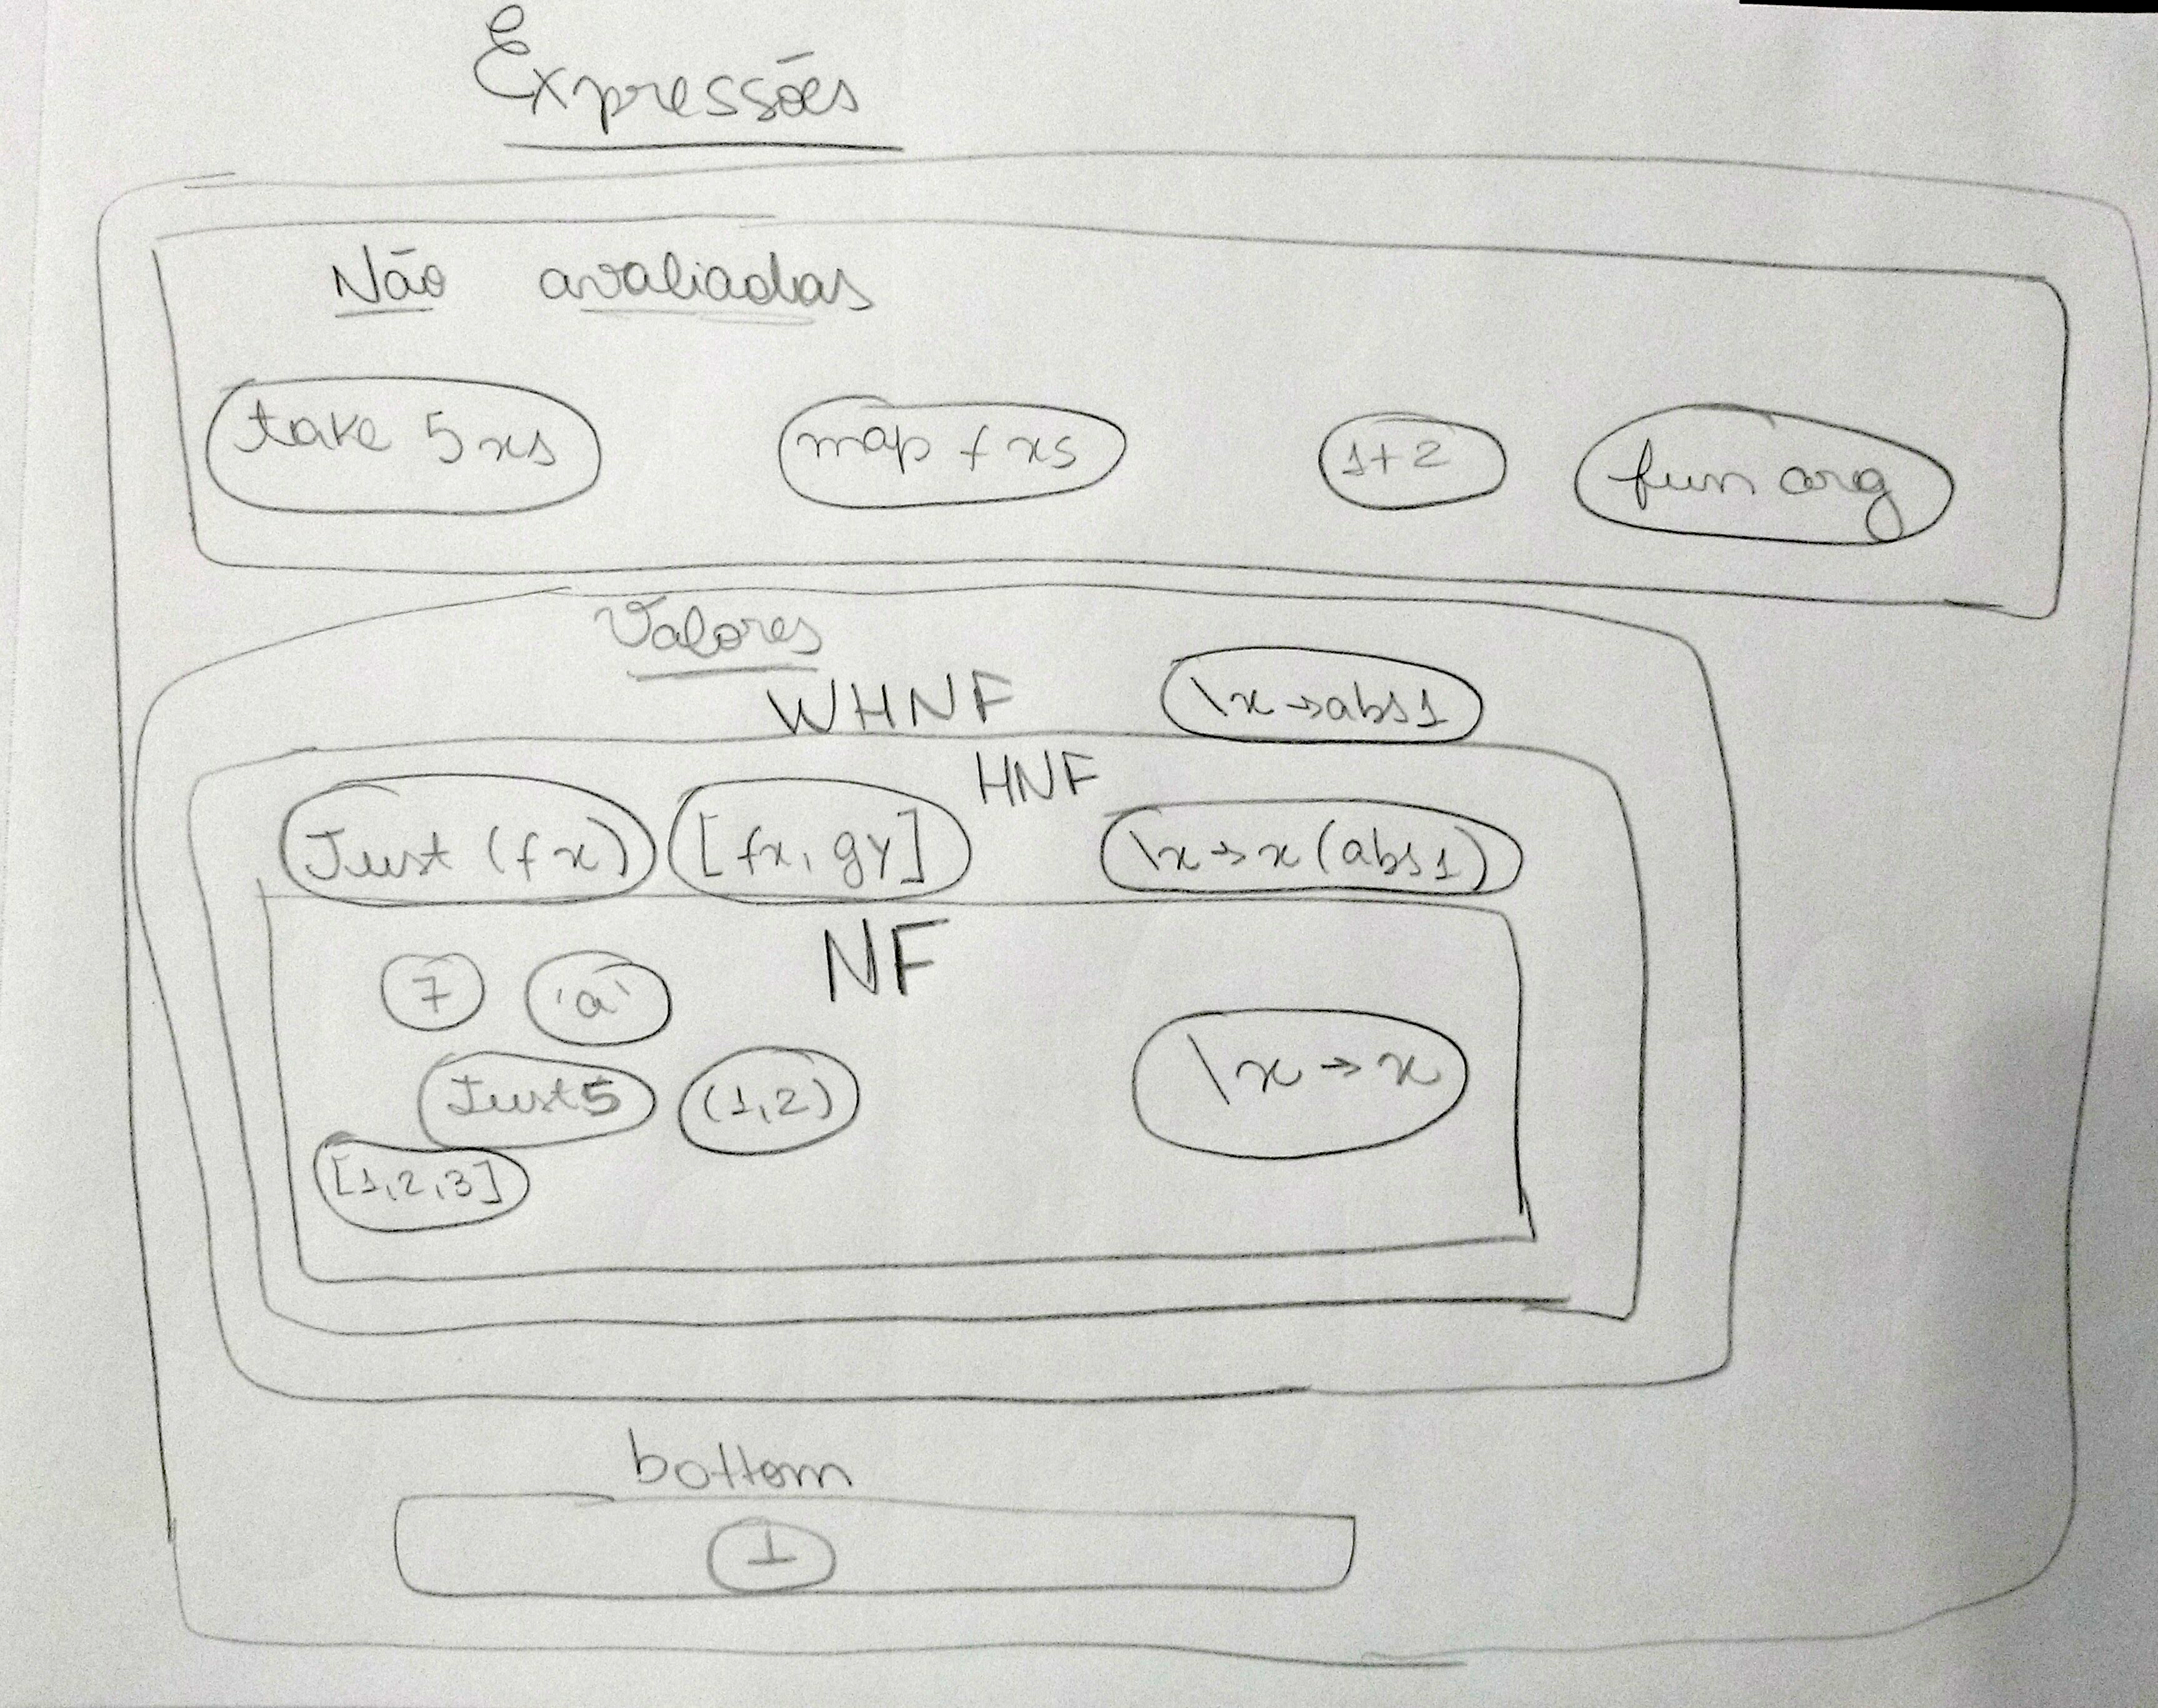 Expressões
Não avaliadas
take 5 xs map f xs 1+2 fun arg
Valores
WHNF \x→abs 1
HNF
Just (f x) [fx, gy] \x→x (abs 1)
NF
7 'a'
Just 5 (1,2) \x→x
[1,2,3]
bottom
⊥